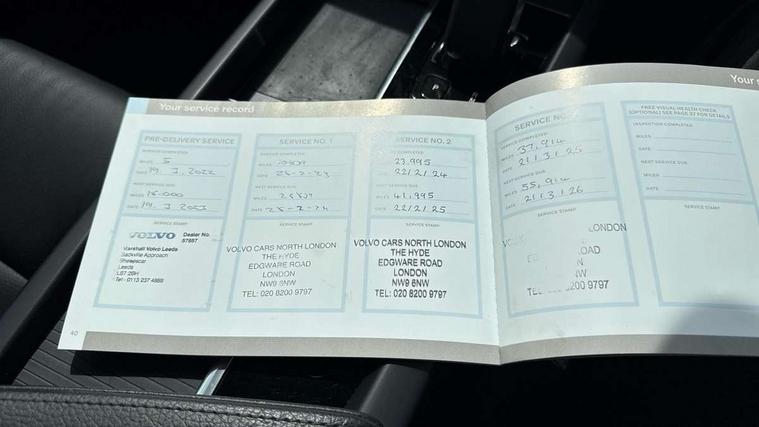 Your service record
PRE-DELIVERY SERVICE
SERVICE COMPLETED
MILES 5
DATE 19.3.2022
NEXT SERVICE DUE
MILES
DATE 19.3.2023
SERVICE STAMP
VOLVO Dealer No.
Marshall Volvo Leeds
Sackville Approach
Sheepscar
Leeds
Tel - 0113 237 4888
SERVICE NO. 1
SERVICE COMPLETED
MILES
DATE
NEXT SERVICE DUE
MILES
DATE
SERVICE STAMP
VOLVO CARS NORTH LONDON
THE HYDE
EDGWARE ROAD
LONDON
NW9 6NW
TEL: 020 8200 9797
SERVICE NO. 2
COMPLETED
23,995
22/2/24
SERVICE DUE
41,995
22/2/25
SERVICE STAMP
VOLVO CARS NORTH LONDON
THE HYDE
EDGWARE ROAD
LONDON
NW9 6NW
TEL: 020 8200 9797
Your
SERVICE
SERVICE COMPLETED
MILES 37,914
DATE 21.3.25
NEXT SERVICE DUE
MILES 55,914
DATE 21.3.26
SERVICE STAMP
LONDON
OAD
N
W
200 9797
FREE VISUAL HEALTH CHECK
(OPTIONAL) SEE PAGE 37 FOR DETAILS
INSPECTION COMPLETED
MILES
DATE
NEXT SERVICE DUE
MILES
DATE
SERVICE STAMP
40